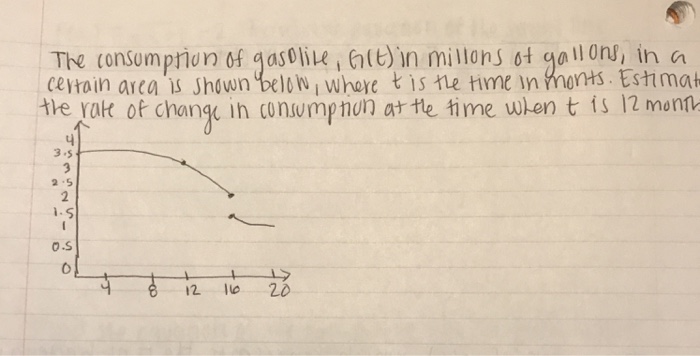 The consumption of gasoline, G(t) in millons of gallons, in a
certain area is shown below, where t is the time in monts. Estimat
the rate of change in consumption at the time when t is 12 month
4
3.5
3
2.5
2
1.5
1
0.5
0
4 8 12 16 20